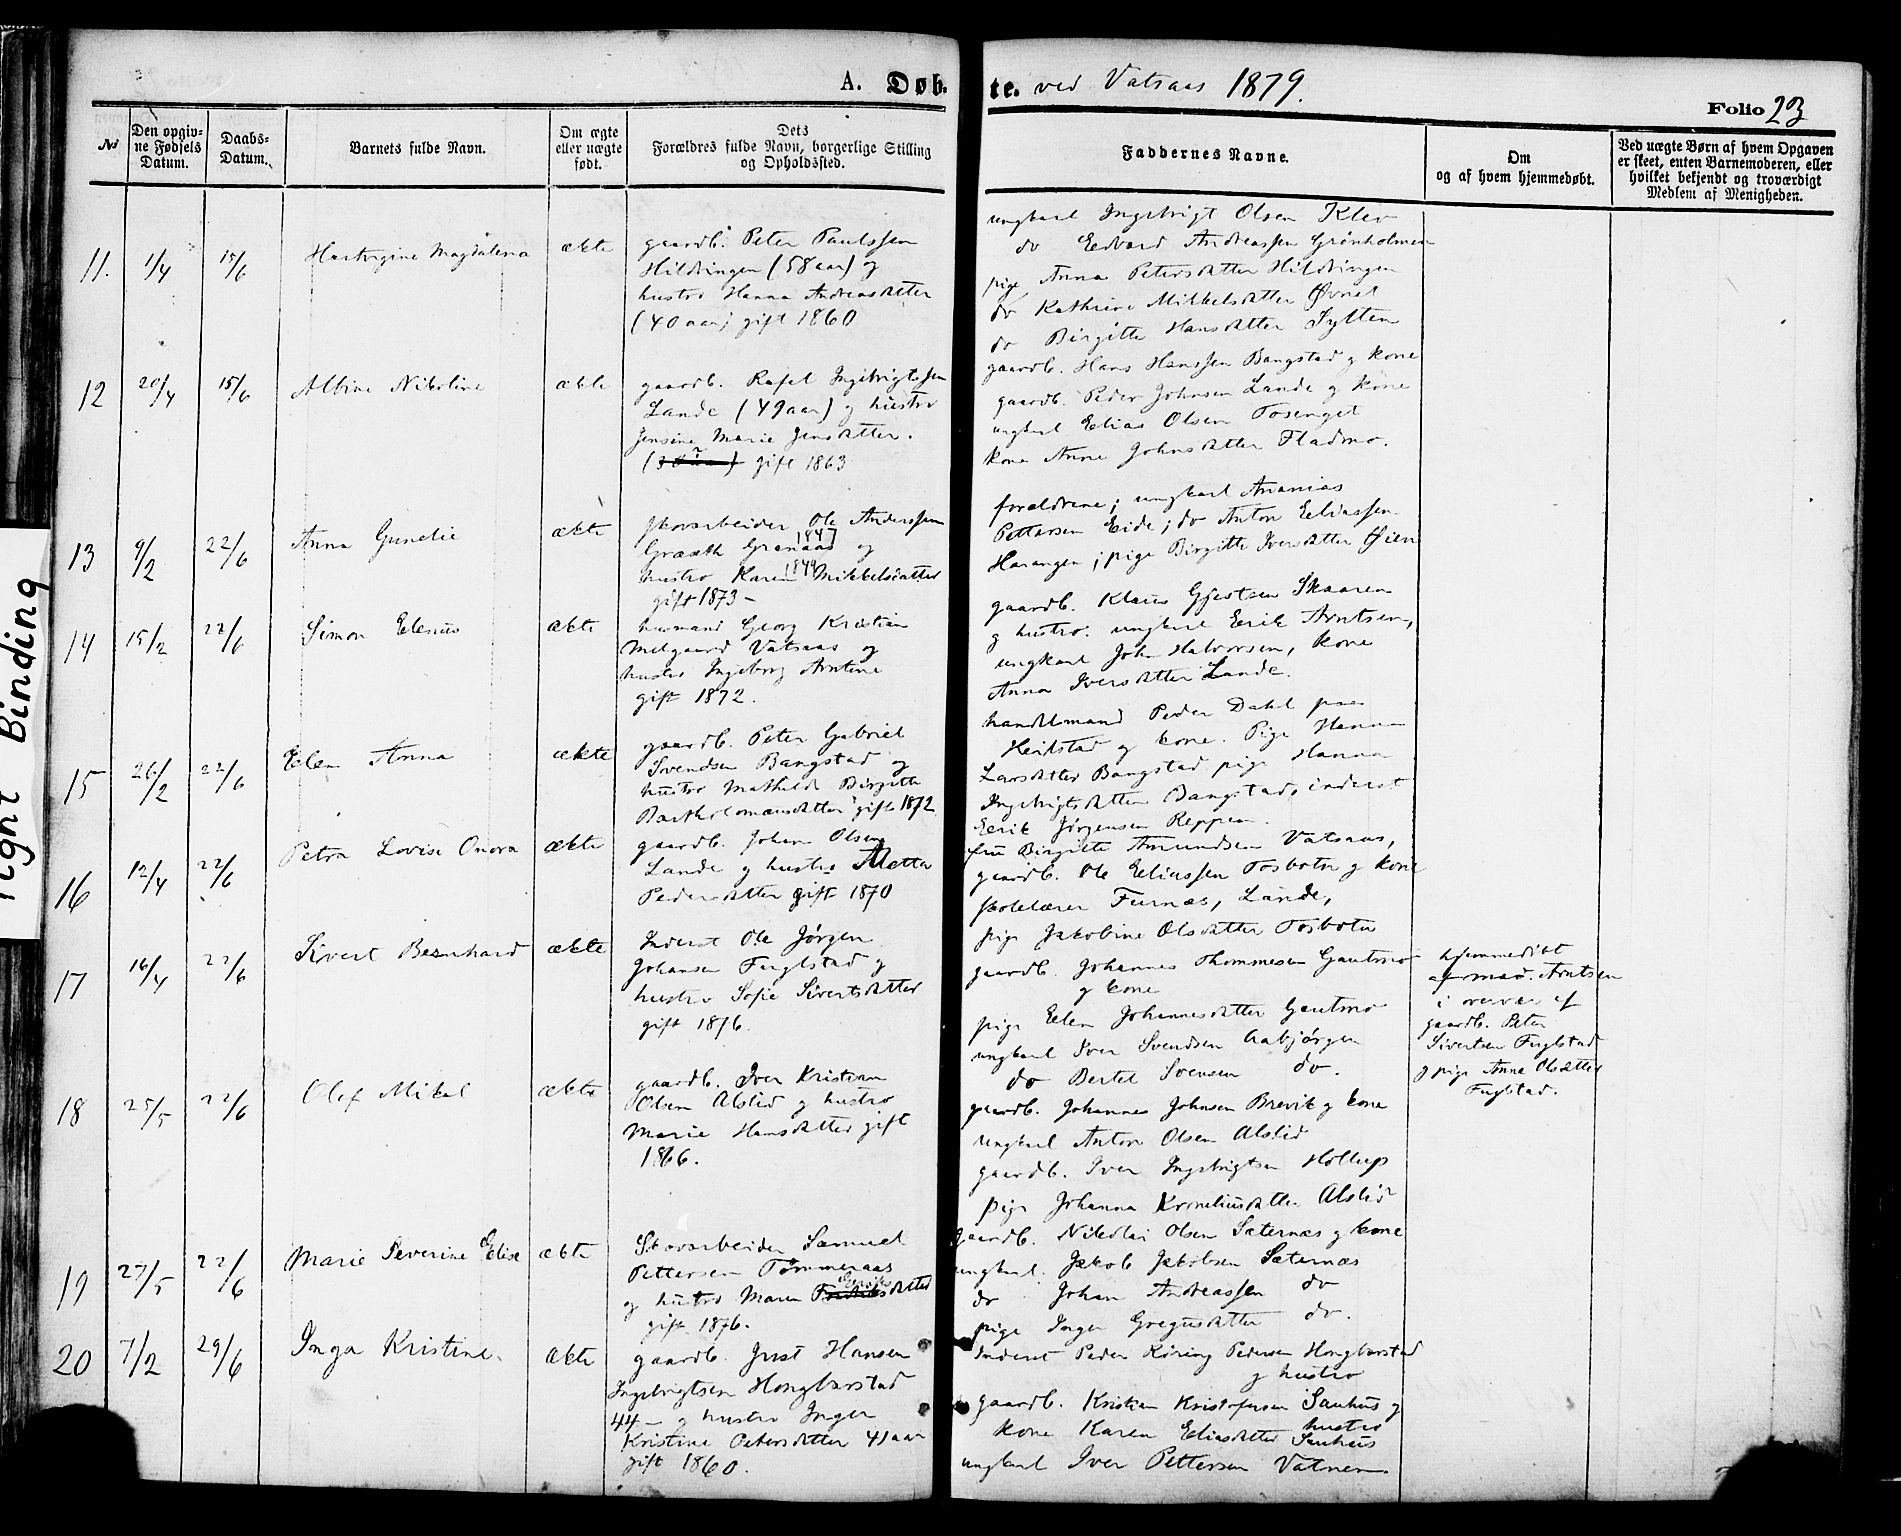 A. Døb- te. ved Vatsaas 1879.
Folio 23
No
Den opgiv-
ne Fødsels
Datum.
Daabs-
Datum.
Barnets fulde Navn.
Om ægte
eller uægte
født.
Dets
Forældres fulde Navn, borgerlige Stilling
og Opholdssted.
Faddernes Navne.
Om
og af hvem hjemmedøbt.
Ved uægte Børn af hvem Opgaven
er skeet, enten Barnemoderen, eller
hvilket bekjendt og troværdigt
Medlem af Menigheden.
11. 1/4 15/6 Hartvigine Magdalena ækte
gaardb. Peter Paulssen
Hildringen (58 aar) og
hustro Hanna Andreasdatter
(40 aar) gift 1860
ungkarl Ingebrigt Olsen Klev
do Edvard Andreassen Grønholmen
pige Anna Petersdatter Hildringen
do Kathrine Mikkelsdatter Øvnet
do Birgitte Hansdatter Sylten
12 20/4 15/6 Albine Nikoline ækte
gaardb. Rafel Ingebrigtssen
Lande (49 aar) og hustro
Jensine Marie Jensdatter.
gift 1863
gaardb. Hans Hanssen Bangstad og kone
gaardb. Peder Johnsen Lande og kone
ungkarl Elias Olsen Tosenget
kone Anne Johnsdatter Fladmo.
13 9/2 22/6 Anna Gunelie ækte
skovarbeider Ole Anderssen
Græsth Grønaas 1847 og
hustro Karen 1849 Mikkelsdatter
gift 1873 –
forældrene; ungkarl Ananias
Pettersen Eide; do Anton Eliassen
Horangen; pige Birgitte Iversdatter Øien
14 15/2 22/6 Simon Elenius ækte
husmand Georg Kristian
Melgaard Vatsaas og
hustro Ingeborg Arntine
gift 1872.
gaardb. Klaus Gjertsen Skaaren
og hustro. ungkarl Erik Arntsen,
ungkarl Joh. Halvorsen, kone
Anna Iversdatter Lande.
15 26/2 22/6 Elen Anna ækte
gaardb. Peter Gabriel
Svendsen Bangstad og
hustro Mathilde Birgitte
Bartholomæusdatter gift 1872
handelsmand Peder Dahl paa
Heilstad og kone. Pige Hanna
Larsdatter Bangstad pige Hanna
Ingebrigtsdatter Bangstad, inderst
Erik Jørgensen Reppen.
16 12/4 22/6 Petra Lovise Onora ækte
gaardb. Johan Olsen
Lande og hustro Metta
Pedersdatter gift 1870
fru Birgitte Amundsen Vatsaas,
gaardb. Ole Eliassen Tosbotn og kone
skolelærer Furnæs, Lande,
pige Jakobine Olsdatter Tosbotn
17 16/4 22/6 Sivert Bernhard ækte
Inderst Ole Jørgen
Johansen Fuglstad og
hustro Sofie Sivertsdatter
gift 1876.
gaardb. Johannes Thommesen Gautmo
og kone
pige Elen Johannesdatter Gautmo
ungkarl Iver Svendsen Aabjørgen
do Bertel Svensen do.
hjemmedøbt
af mad. Arntsen
i overvær af
gaardb. Peter
Sivertsen Fuglstad
og pige Anne Olsdatter
Fuglstad.
18 25/5 22/6 Olef Mikal ækte
gaardb. Iver Kristian
Olsen Alslid og hustro
Marie Hansdatter gift
1866.
gaardb. Johannes Johnsen Brevik og kone
Ungkarl Anton Olsen Alslid
gaardb. Iver Ingebrigtsen Hollup
Pige Johanna Korneliusdatter Alslid
19 27/5 22/6 Marie Severine Elise ækte
Skovarbeider Samuel
Pettersen Tømmeraas
og hustro Maren datter
gift 1876.
gaardb. Nikolai Olsen Sæternæs og kone
ungkarl. Jakob Jakobsen Sæternæs
do Johan Andreassen do
pige Inger Gregusdatter do.
20 7/2 29/6 Inga Kristine. ækte
gaardb. Just Hansen
Ingebrigtsen Hongbarstad
44 – og hustro Inger
Kristine Petersdatter 41 aar
gift 1860.
Inderst Peder Röring Pedersen Hongbarstad
og hustro
gaardb. Kristian Kristofersen Sauhus og
hustro
kone Karen Eliasdatter Sauhus
ungkarl Iver Pettersen Vatnem
Tight Binding